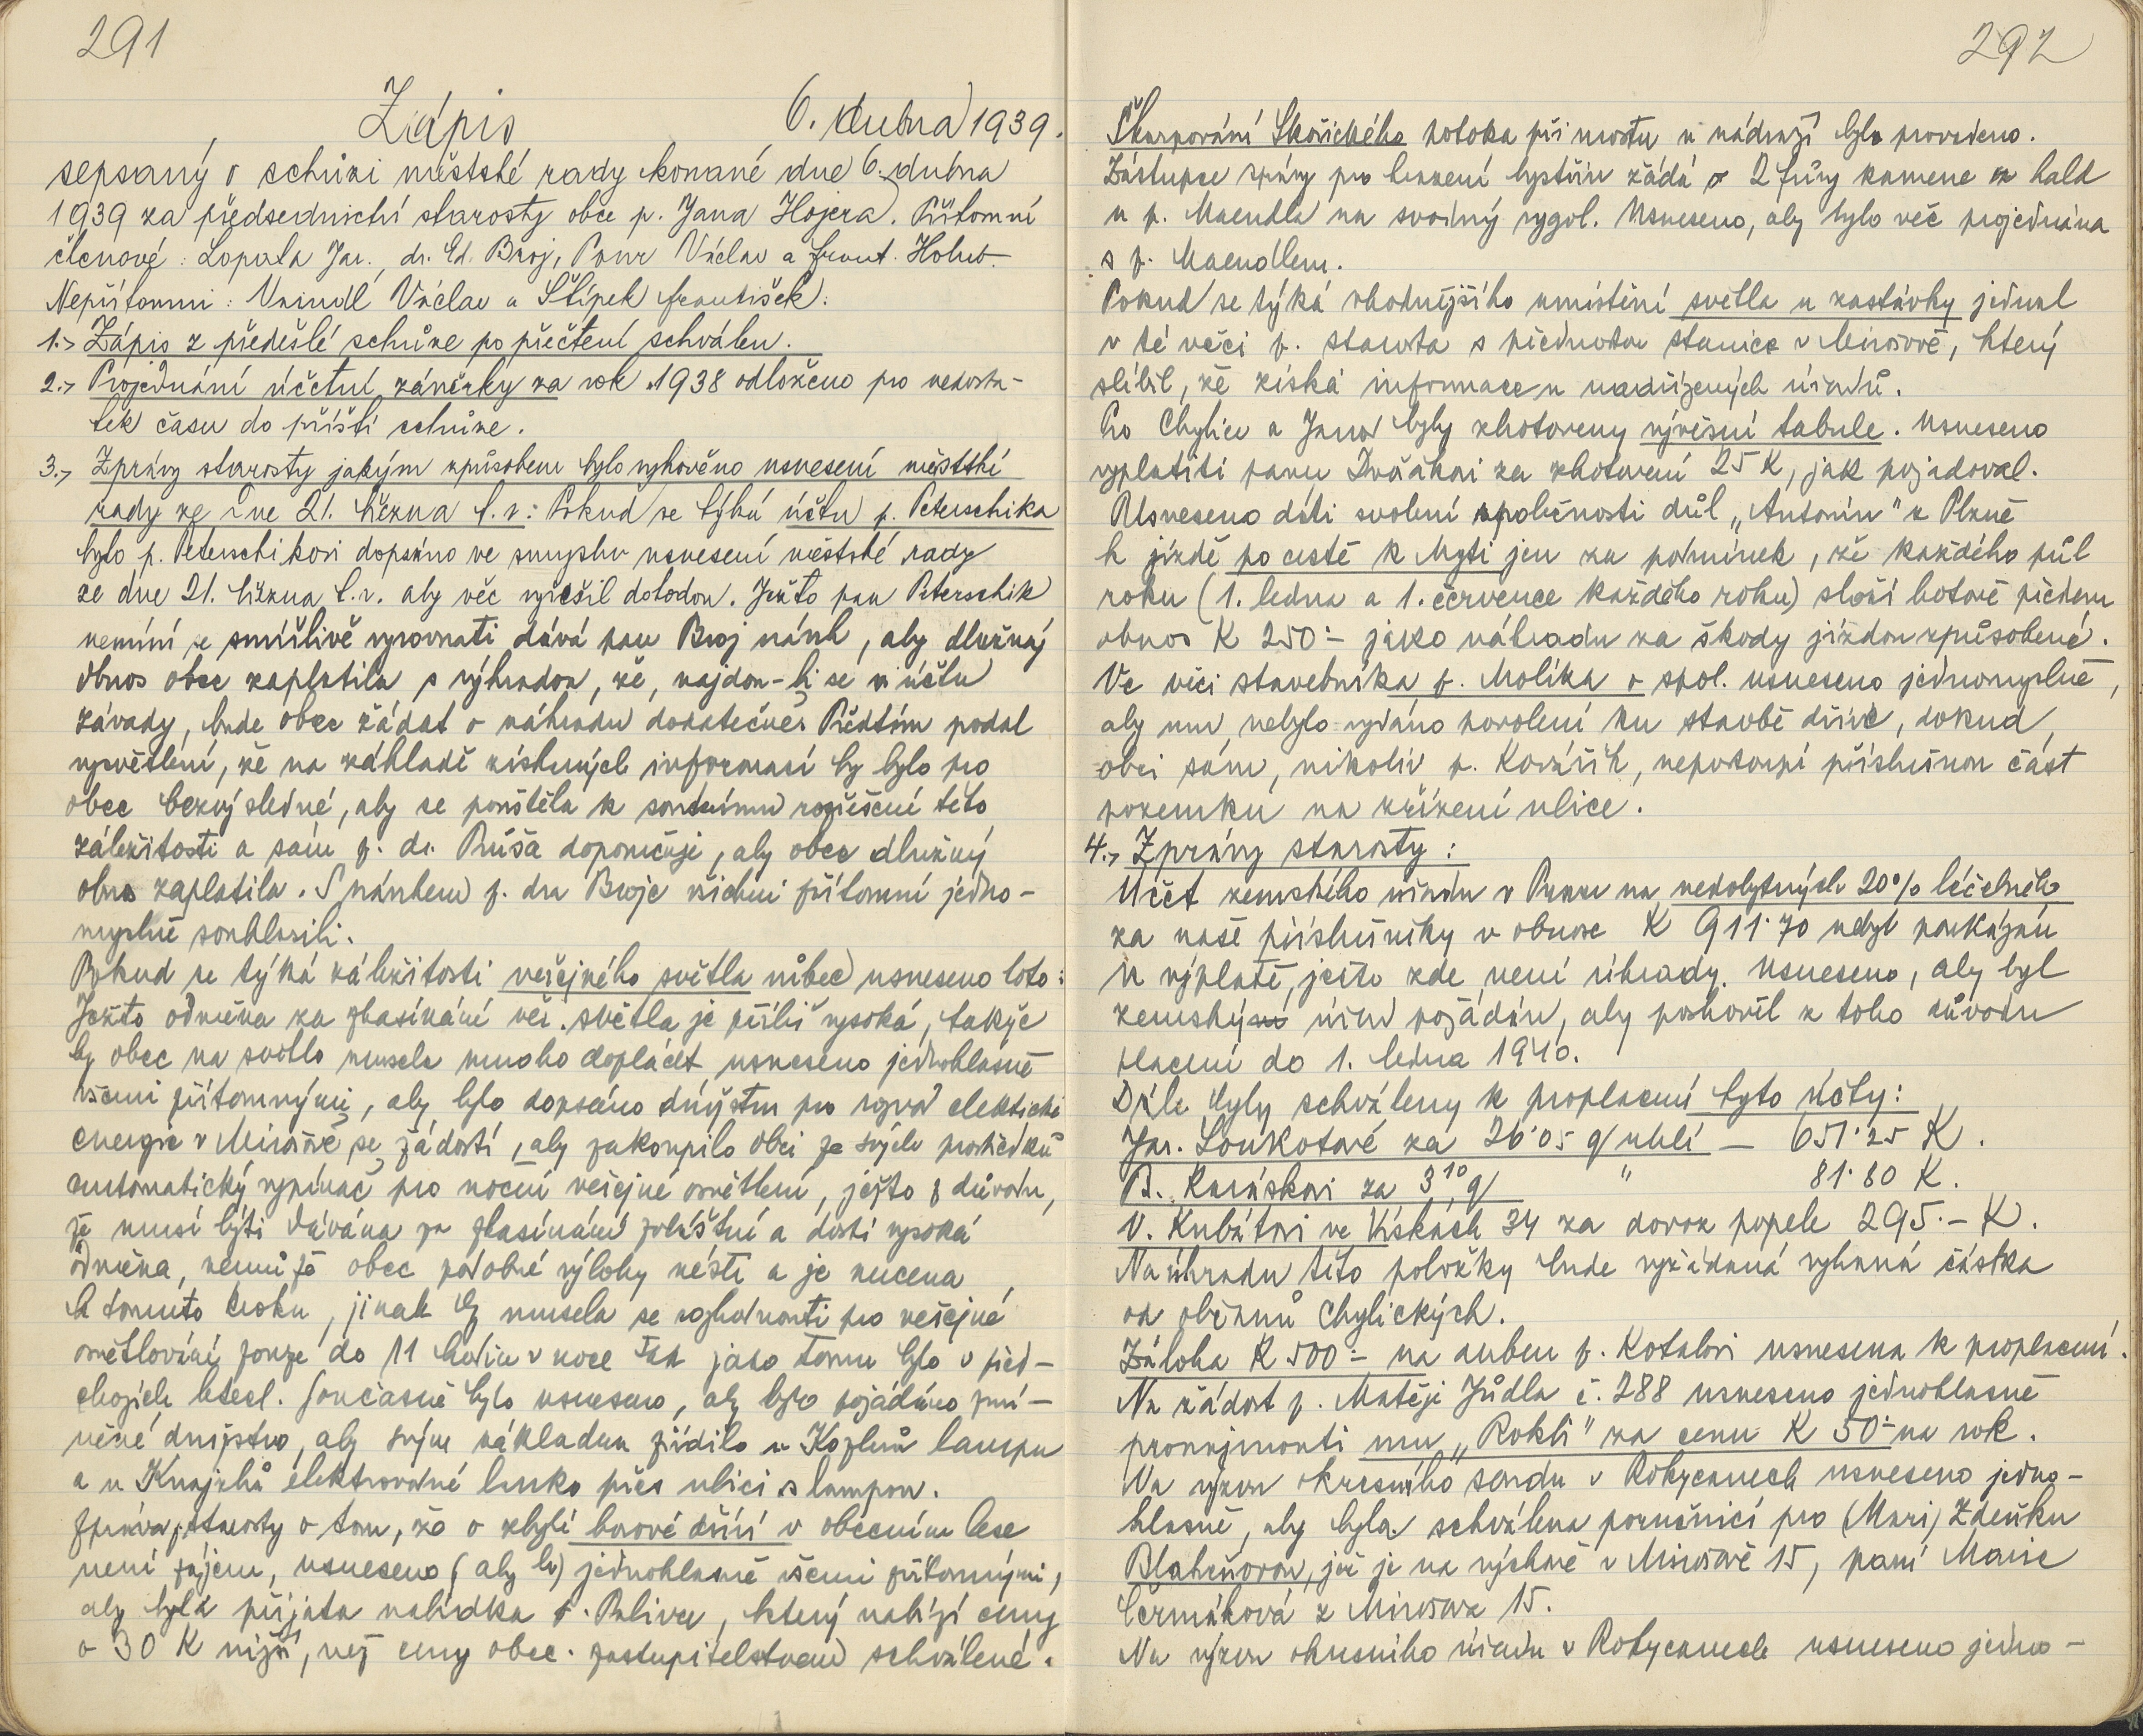 291
Zápis 6. dubna 1939.
sepsaný o schůzi městské rady konané dne 6. dubna
1939 za předsednictví starosty obce p. Jana Hojera. Přítomní
členové: Lopata Jar., dr. Ed. Broj, Václav a Frant. Holub.
Nepřítomni: Václav a Štípek František.
1.) Zápis z předešlé schůze po přečtení schválen.
2.) Projednání účetní závěrky za rok 1938 odloženo pro nedosta-
tek času do příští schůze.
3.) Zprávy starosty jakým způsobem bylo vyhověno usnesení městské
rady ze dne 21. března t.r.: Pokud se týká účtu p. Peterschika
bylo p. Peterschikovi dopsáno ve smyslu usnesení městské rady
ze dne 21. března t.r. aby věc vyřešil dohodou. Ježto pan Peterschik
nemíní se smířlivě vyrovnati dává pan Broj návrh, aby dlužný
obnos obec zaplatila s výhradou, že, najdou-li se v účtu
závady, bude obec žádat o náhradu dodatečně. Předtím podal
vysvětlení, že na základě získaných informací by bylo pro
obec bezvýsledné, aby se pouštěla k soudnímu rozřešení této
záležitosti a sám p. dr. Růša doporučuje, aby obec dlužný
obnos zaplatila. S návrhem p. dra Broje všichni přítomní jedno-
myslně souhlasili.
Pokud se týká záležitosti veřejného světla vůbec usneseno toto:
Ježto odměna za zhasínání veř. světla je příliš vysoká, takže
by obec na světlo musela mnoho doplácet usneseno jednohlasně
všemi přítomnými, aby bylo dopsáno družstvu pro rozvod elektrické
energie v Mirošově se žádostí, aby zakoupilo obci ze svých prostředků
automatický vypínač pro noční veřejné osvětlení, ježto z důvodu,
že musí býti dávána za zhasínání zvláštní a dosti vysoká
odměna, nemůže obec podobné výlohy nésti a je nucena
k tomuto kroku, jinak by musela se rozhodnouti pro veřejné
osvětlování pouze do 11 hodin v noce tak jako tomu bylo v před-
chozích letech. Současně bylo usneseno, aby bylo požádáno zmí-
něné družstvo, aby svým nákladem zřídilo u Kozlerů lampu
a u Knajzlů elektrovodné lanko přes ulici s lampou.
Zpráva starosty o tom, že o zbylé borové dříví v obecním lese
není zájem, usneseno (aby b) jednohlasně všemi přítomnými,
aby byla přijata nabídka p. Palivce, který nabízí ceny
o 30 K nižší, než ceny obec. zastupitelstvem schválené.
292
Škarpování Skořického potoka při mostu u nádraží bylo provedeno.
Zástupce správy pro hrazení bystřin žádá o 2 fůry kamene z hald
u p. Maendla na svodný rygol. Usneseno, aby byla věc projednána
s p. Maendlem.
Pokud se týká vhodnějšího umístění světla u zastávky jednal
v té věci p. starosta s přednostou stanice v Mirošově, který
slíbil, že získá informace u nadřízených úřadů.
Pro Chylice a Janov byly zhotoveny vývěsní tabule. Usneseno
vyplatiti panu Dvořákovi za zhotovení 25 K, jak požadoval.
Usneseno dáti svolení společnosti důl „Antonín" z Plzně
k jízdě po cestě k Mýti jen za podmínek, že každého půl
roku (1. ledna a 1. července každého roku) složí hotově předem
obnos K 250·- jako náhradu za škody jízdou způsobené.
Ve věci stavebníka p. Molíka a spol. usneseno jednomyslně,
aby mu nebylo vydáno povolení ku stavbě dříve, dokud
obci sám, nikoliv p. Kovářík, nepostoupí příslušnou část
pozemku na zřízení ulice.
4.) Zprávy starosty:
Účet zemského úřadu v Praze na nedobytných 20% léčebného
za naše příslušníky v obnose K 911·70 nebyl poukázán
k výplatě, ježto zde není úhrady. Usneseno, aby byl
zemský úřad požádán, aby poshověl z toho důvodu
placení do 1. ledna 1940.
Dále byly schváleny k proplacení tyto účty:
Jar. Loukotové za 26·05 q uhlí — 651·25 K.
B. Karáskovi za 3,10 q " 81·80 K.
V. Kubátovi ve Vískách 34 za dovoz popele 295.- K.
Na úhradu této položky bude vyžádaná vybraná částka
od občanů Chylických.
Záloha K 500·- na dubu p. Kotalovi usnesena k proplacení.
Na žádost p. Matěje Jůdla č. 288 usneseno jednohlasně
pronajmouti mu „Rokli" za cenu K 50·- na rok.
Na výzvu okresního soudu v Rokycanech usneseno jedno-
hlasně, aby byla schválena poručnicí pro (Marii) Zdeňku
Blahušovou, jež je na výchově v Mirošově 15, paní Marie
Čermáková z Mirošova 15.
Na výzvu okresního úřadu v Rokycanech usneseno jedno-